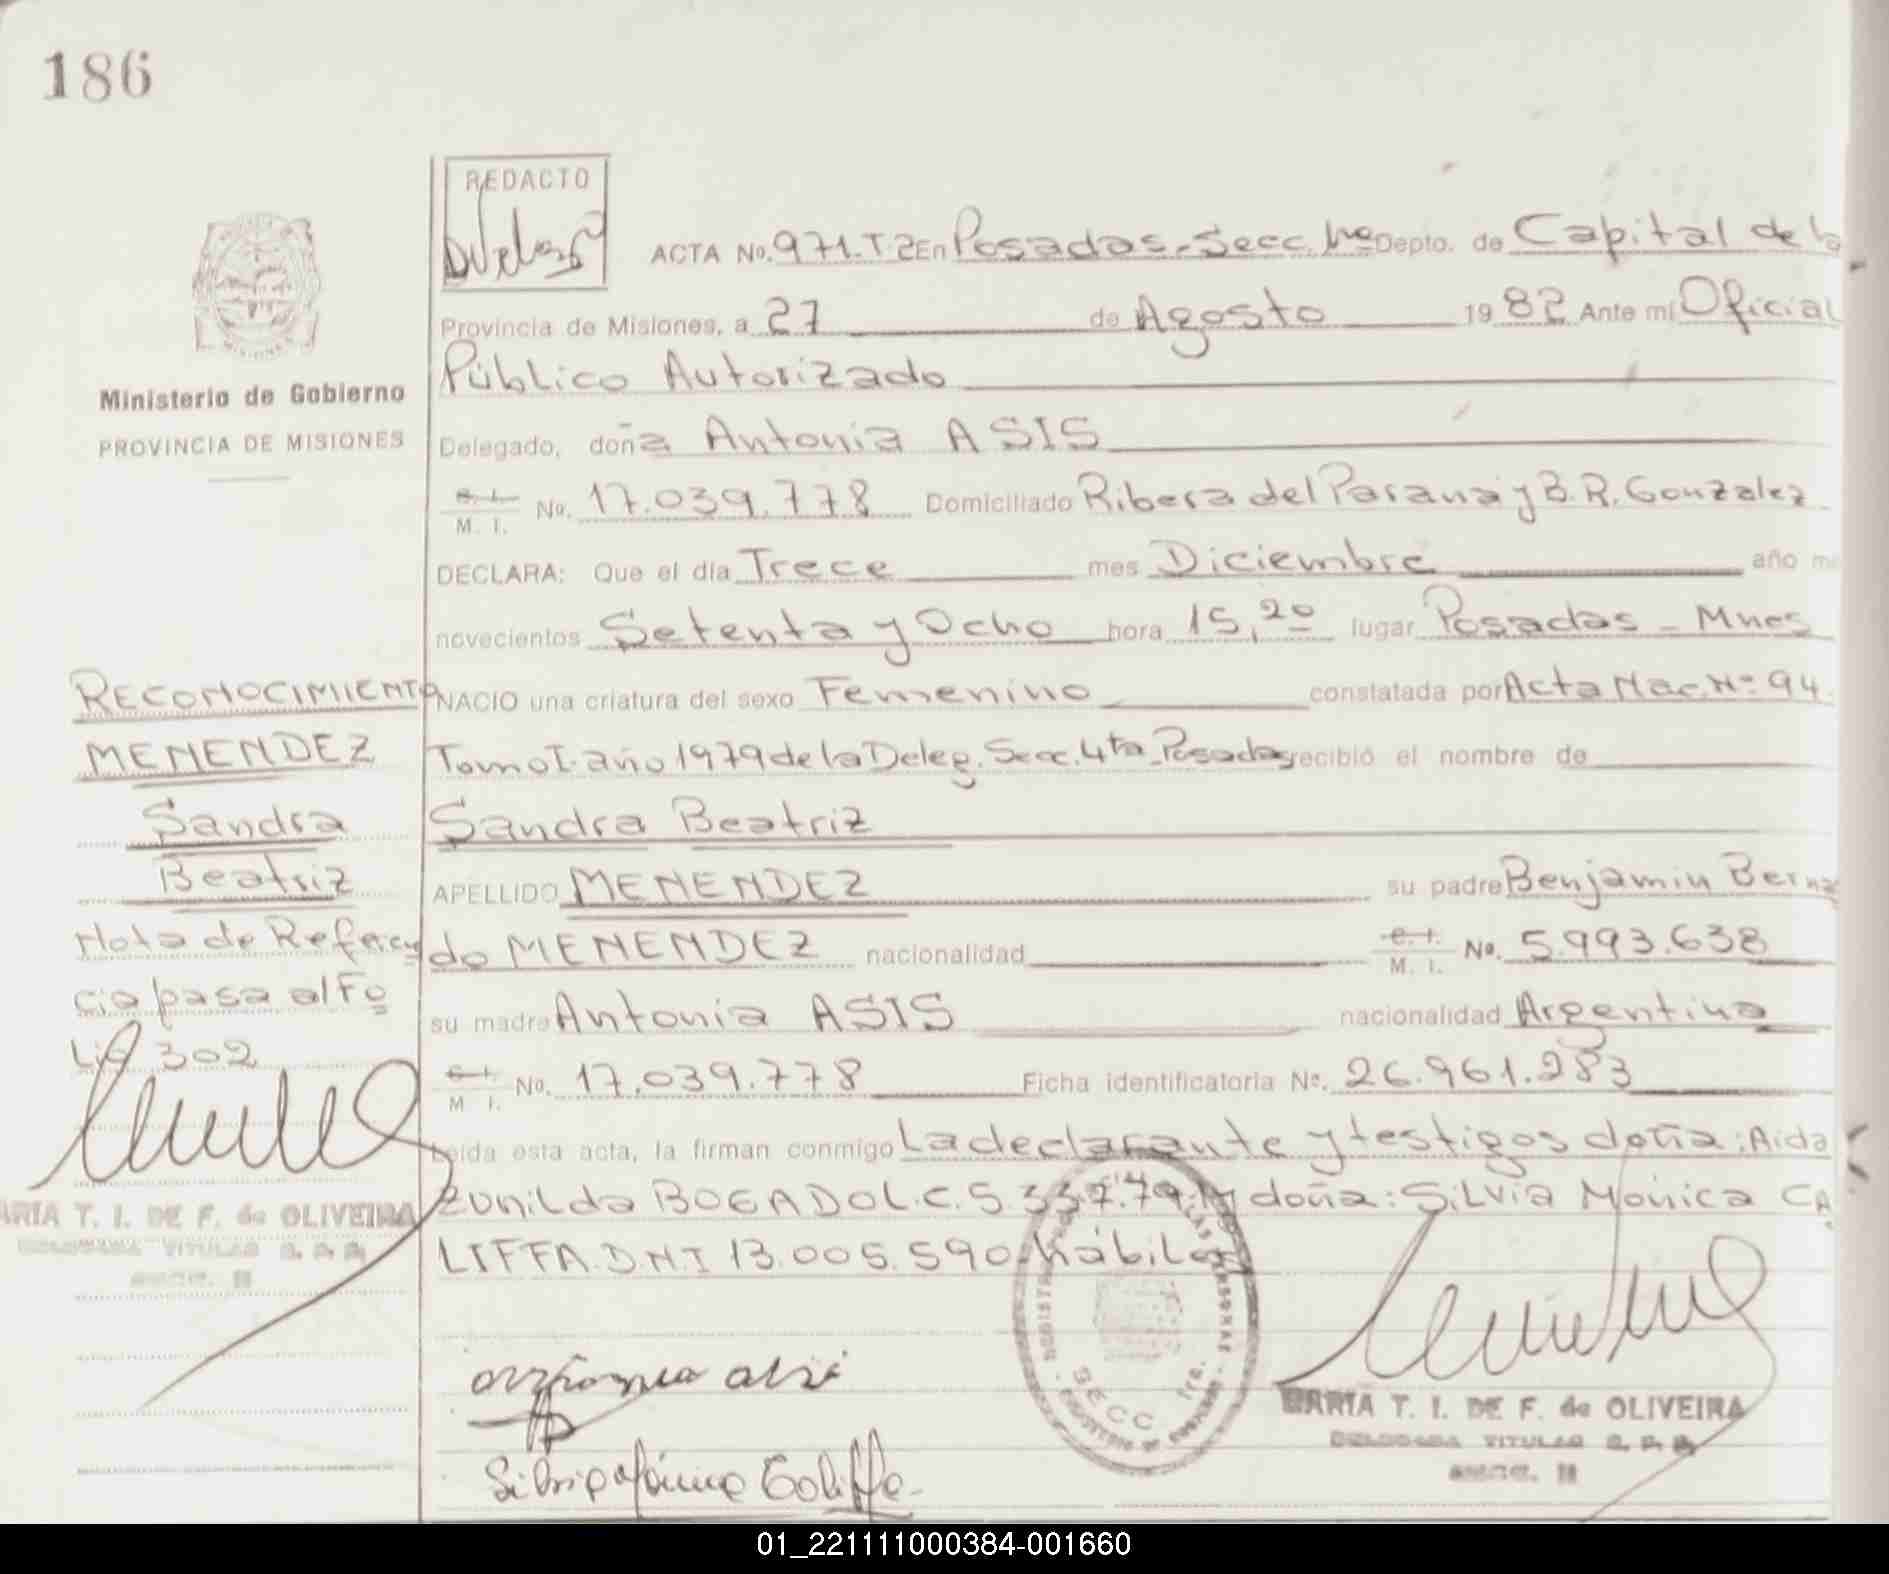 186
REDACTO
ACTA No. 971. T. 2 En Posadas - Secc. 1ra Depto. de Capital de la
Provincia de Misiones, a 27 de Agosto 1982 Ante mi Oficial
Público Autorizado
Ministerio de Gobierno
PROVINCIA DE MISIONES
Delegado, doña Antonia ASIS
C. I. M. I. No. 17.039.778 Domiciliado Ribera del Parana y B. R. Gonzalez
DECLARA: Que el día Trece mes Diciembre año mil
novecientos Setenta y Ocho hora 15,20 lugar Posadas - Mnes
NACIO una criatura del sexo Femenino constatada por Acta Nac. Nº 94.
Tomo I. año 1979 de la Deleg. Secc. 4ta Posadas recibió el nombre de
Sandra Beatriz
APELLIDO MENENDEZ su padre Benjamin Berna
do MENENDEZ nacionalidad C. I. M. I. No. 5.993.638
su madre Antonia ASIS nacionalidad Argentina
C. I. M. I. No. 17.039.778 Ficha identificatoria Nº. 26.961.283
Leída esta acta, la firman conmigo La declarante y testigos doña: Aida
Zunilda BOGADO L.C. 5.337.79 y doña: Silvia Mónica CA
LIFFA. DNI 13.005.590 hábiles
RECONOCIMIENTO
MENENDEZ
Sandra
Beatriz
Nota de Referen
cia pasa al Fo
lio 302
MARIA T. I. DE F. de OLIVEIRA
DELEGADA TITULAR R. P. P.
SECC.
Silvia Mónica Califfa
SECC 1ra.
MARIA T. I. DE F. de OLIVEIRA
DELEGADA TITULAR R. P. P.
SECC.
01_221111000384-001660